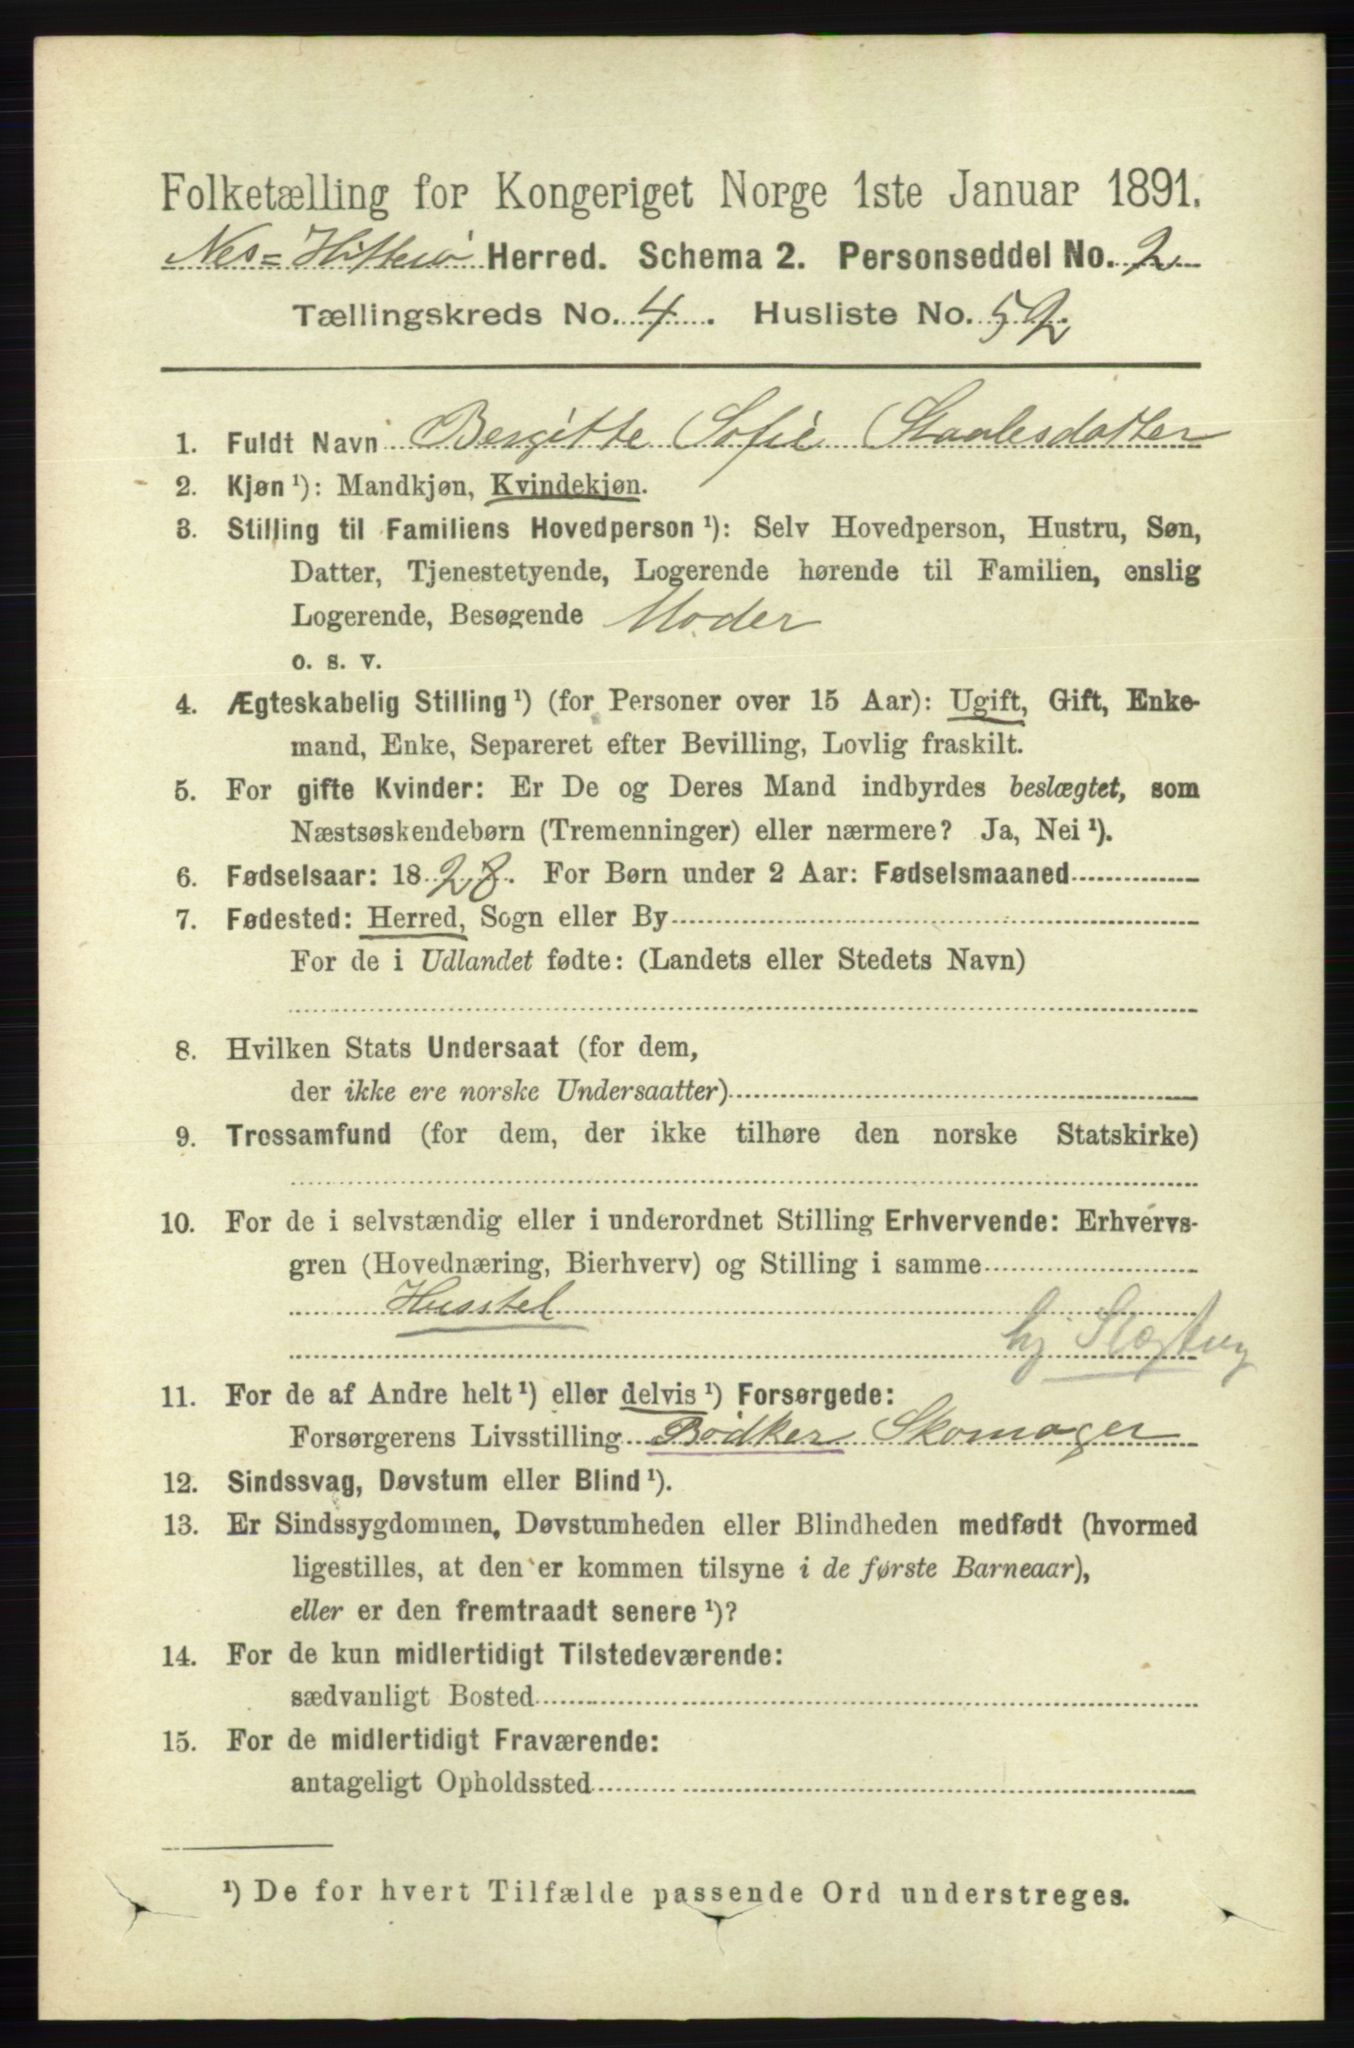 Folketælling for Kongeriget Norge 1ste Januar 1891.
Nes=Hitterø Herred. Schema 2. Personseddel No. 2
Tællingskreds No. 4. Husliste No. 52.
1. Fuldt Navn Bergitte Sofie Staalesdatter
2. Kjøn ¹): Mandkjøn, Kvindekjøn.
3. Stilling til Familiens Hovedperson ¹): Selv Hovedperson, Hustru, Søn,
Datter, Tjenestetyende, Logerende hørende til Familien, enslig
Logerende, Besøgende Moder
o. s. v.
4. Ægteskabelig Stilling ¹) (for Personer over 15 Aar): Ugift, Gift, Enke-
mand, Enke, Separeret efter Bevilling, Lovlig fraskilt.
5. For gifte Kvinder: Er De og Deres Mand indbyrdes beslægtet, som
Næstsøskendebørn (Tremenninger) eller nærmere? Ja, Nei ¹).
6. Fødselsaar: 1828. For Børn under 2 Aar: Fødselsmaaned
7. Fødested: Herred, Sogn eller By
For de i Udlandet fødte: (Landets eller Stedets Navn)
8. Hvilken Stats Undersaat (for dem,
der ikke ere norske Undersaatter)
9. Trossamfund (for dem, der ikke tilhøre den norske Statskirke)
10. For de i selvstændig eller i underordnet Stilling Erhvervende: Erhvervs-
gren (Hovednæring, Bierhverv) og Stilling i samme
Husstel
hj Slægtng
11. For de af Andre helt ¹) eller delvis ¹) Forsørgede:
Forsørgerens Livsstilling Bødker Skomager
12. Sindssvag, Døvstum eller Blind ¹).
13. Er Sindssygdommen, Døvstumheden eller Blindheden medfødt (hvormed
ligestilles, at den er kommen tilsyne i de første Barneaar),
eller er den fremtraadt senere ¹)?
14. For de kun midlertidigt Tilstedeværende:
sædvanligt Bosted
15. For de midlertidigt Fraværende:
antageligt Opholdssted
¹) De for hvert Tilfælde passende Ord understreges.